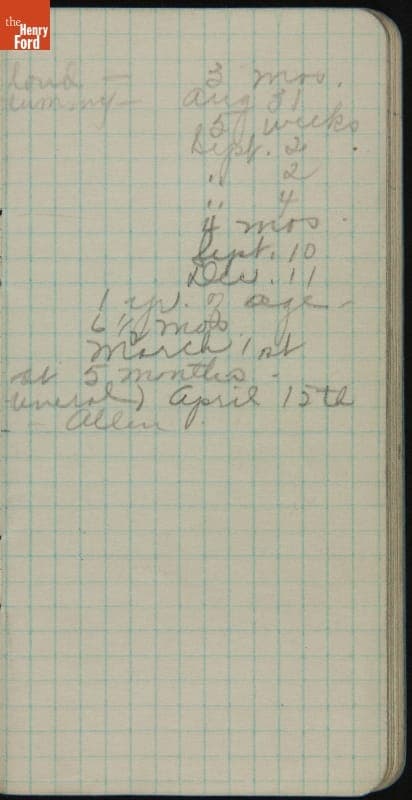 the
Henry
Ford
loud — 3 mos.
tummy — Aug 31
5 weeks
Sept. 2
" 2
" 4
4 mos.
Sept. 10
Dec. 11
1 yr. of age —
6 1/2 mos.
March 1st
at 5 months —
uneral) April 15th
— Allen